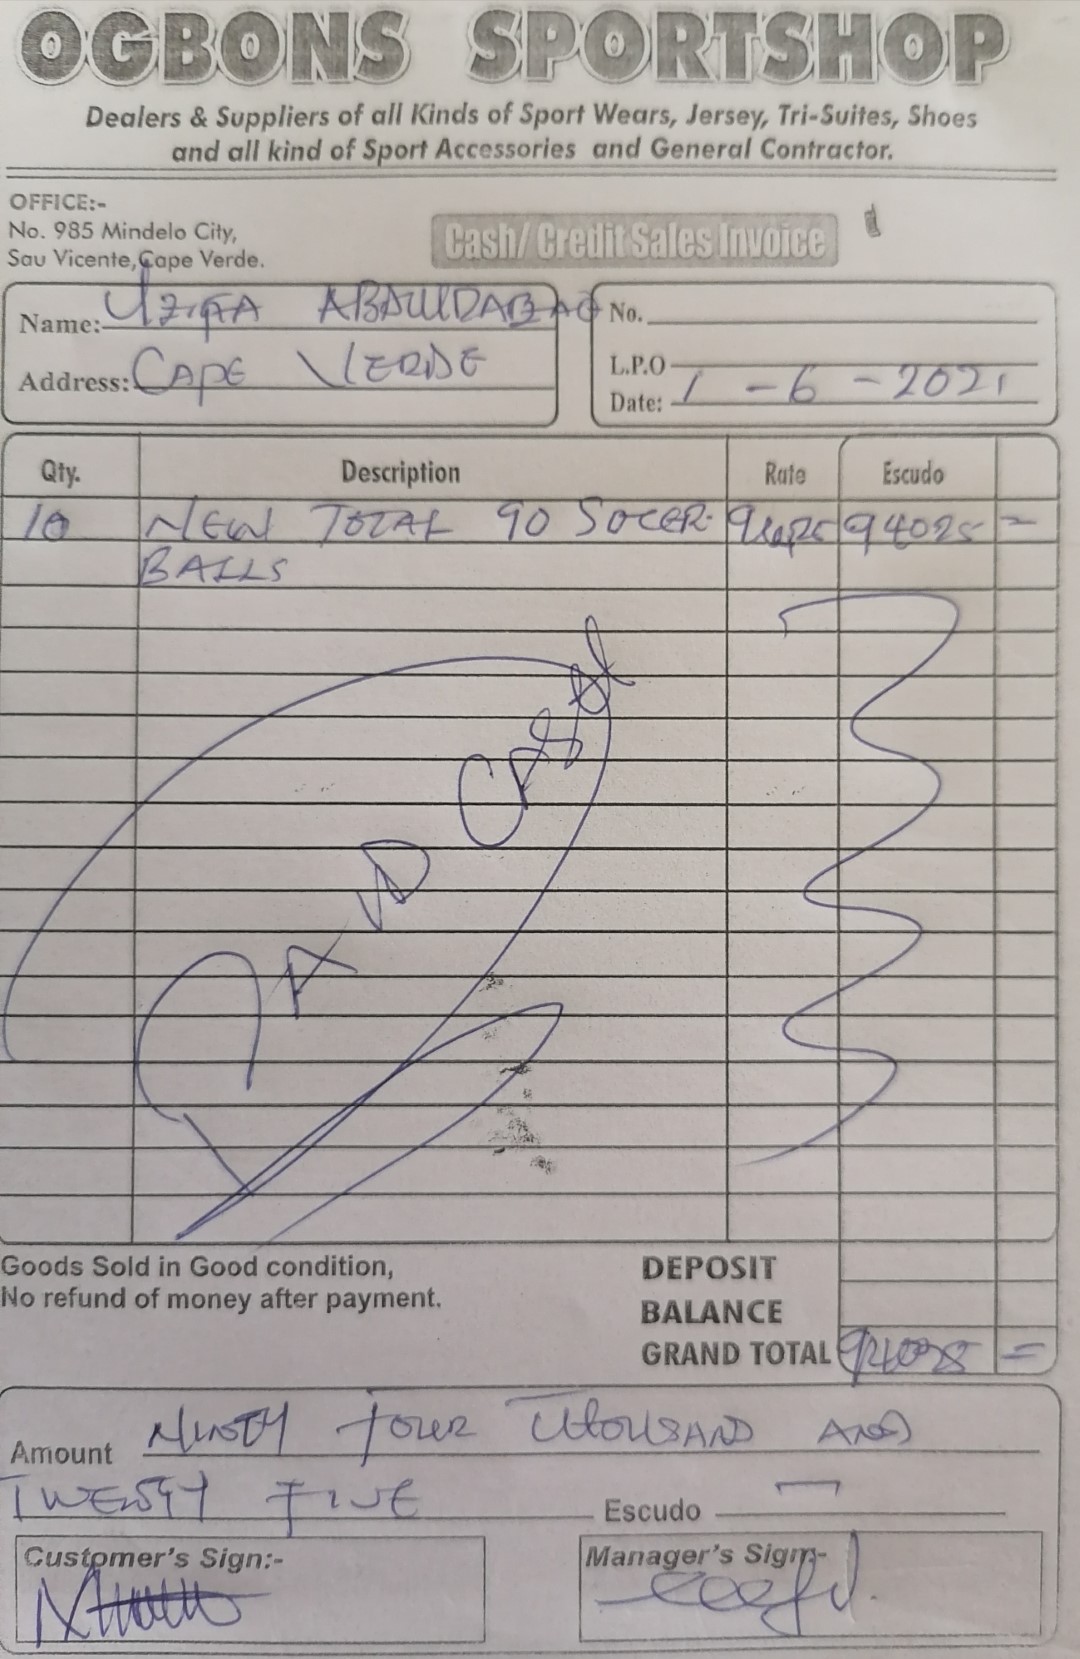 OGBONS SPORTSHOP
Dealers & Suppliers of all Kinds of Sport Wears, Jersey, Tri-Suites, Shoes
and all kind of Sport Accessories and General Contractor.
OFFICE:-
No. 985 Mindelo City,
Sau Vicente, Cape Verde.
Cash/ Credit Sales Invoice
Name:-
Address: CAPE VERDE
No.
L.P.O
Date: 1-6-2021
Qty. Description Rate Escudo
10 NEW TOTAL 90 SOCER 94025 =
BALLS
PAID CASH
Goods Sold in Good condition,
No refund of money after payment.
DEPOSIT
BALANCE
GRAND TOTAL 94025 =
Amount NINETY FOUR THOUSAND AND
TWENTY FIVE Escudo
Customer's Sign:-
Manager's Sign:-